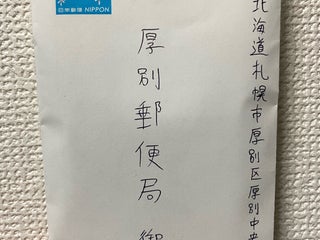 日本郵便 NIPPON
北海道札幌市厚別区厚別中央
厚別郵便局 御